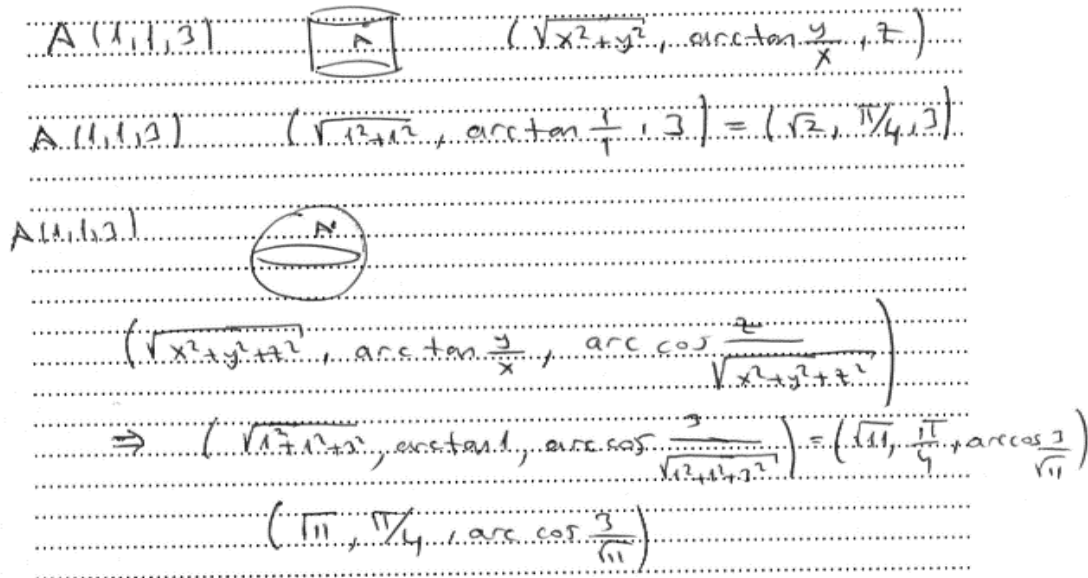 A (1,1,3) A (√x²+y², arctan y/x, z)
A (1,1,3) (√1²+1², arctan 1/1, 3) = (√2, π/4, 3)
A(1,1,3) A
(√x²+y²+z², arctan y/x, arccos z/√x²+y²+z²)
⇒ (√1²+1²+3², arctan1, arccos 3/√1²+1²+3²) = (√11, π/4, arccos 3/√11)
(√11, π/4, arc cos 3/√11)